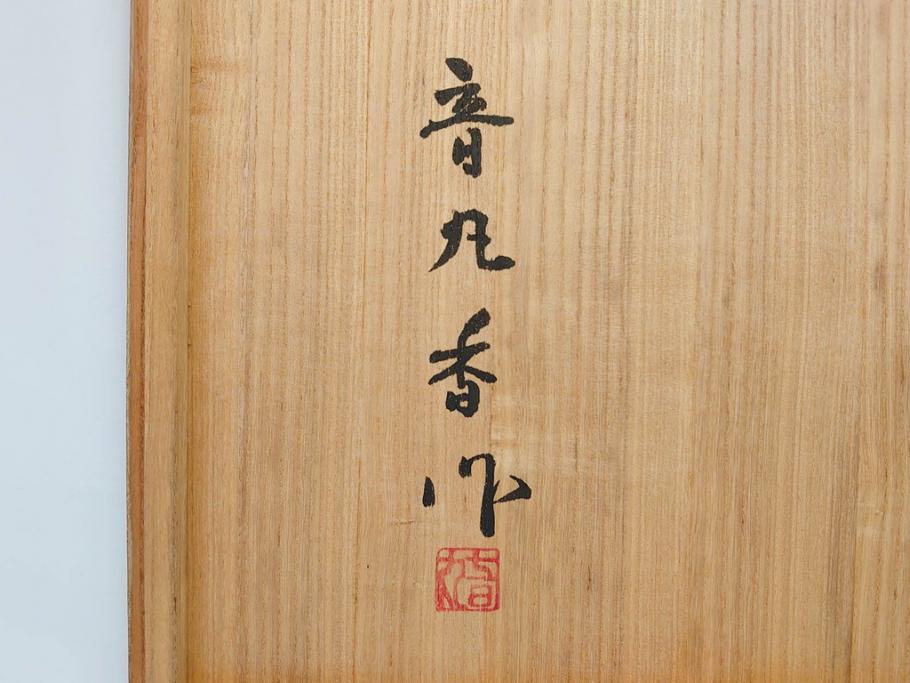 音丸香作